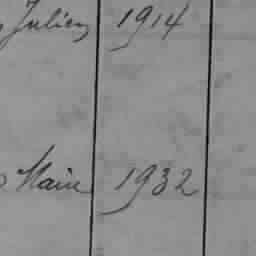 Julien 1914
Marie 1932